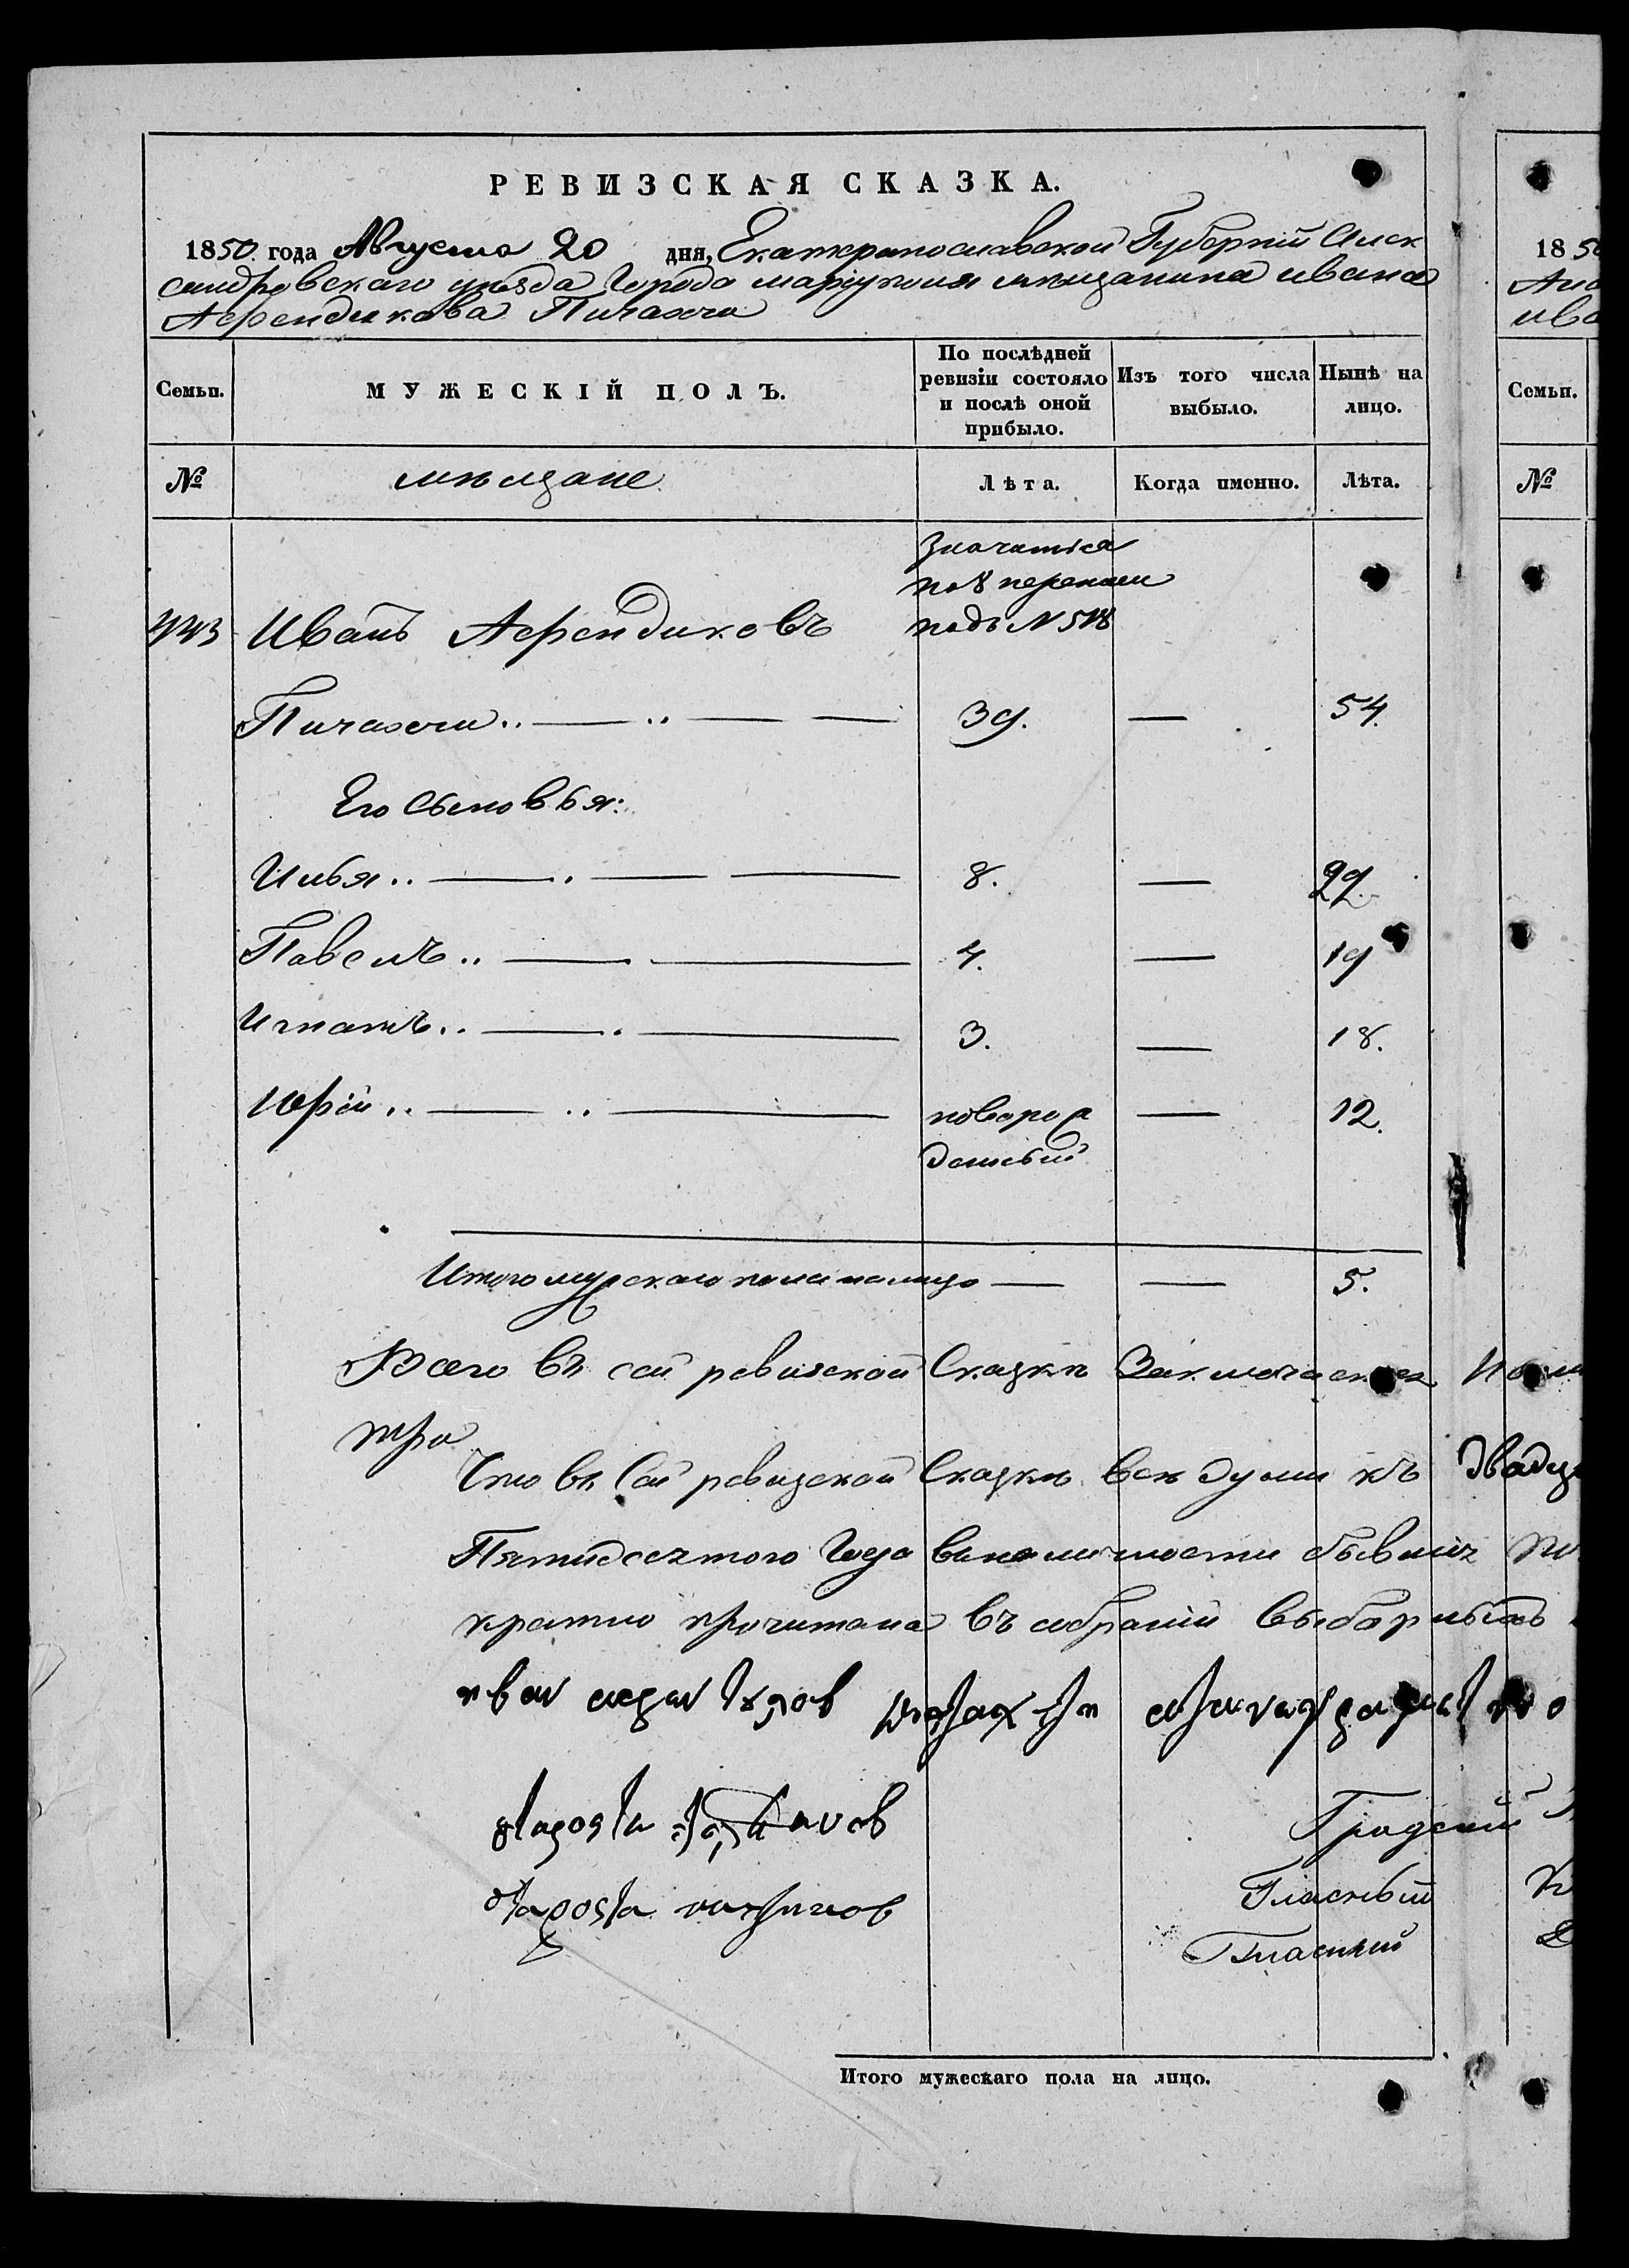 РЕВИЗСКАЯ СКАЗКА.
1850 года Августа 20 дня, Екатеринославской Губерніи Алек
сандровскаго уѣзда города маріуполя мѣщанина ивана
Афендикова Пичахчи
Семьи.
МУЖЕСКІЙ ПОЛЪ.
По послѣдней ревизіи состояло и послѣ оной прибыло.
Изъ того числа выбыло.
Нынѣ на лицо.
№
мѣщане
Лѣта.
Когда именно.
Лѣта.
Значится
по 8 переписи
443 Иванъ Афендиковъ подъ N 518
Пичахчи 39. — 54.
Его Сыновья:
Илья 8. — 22.
Павелъ 4. — 19
Игнатъ 3. — 18.
Юрій новорож — 12.
денный
Итого мужскаго пола налицо — — 5.
Всего въ сей ревизской Сказкѣ Заключается
Что въ Сей ревизской Сказкѣ всѣ души къ Двадца
Пятидесятого Года вналичности бывшіе
кратно прочитана въ собраніи Выборныхъ
иван
староста
староста
Градской
Гласный
Гласный
Итого мужескаго пола на лицо.
185
Семьи.
№